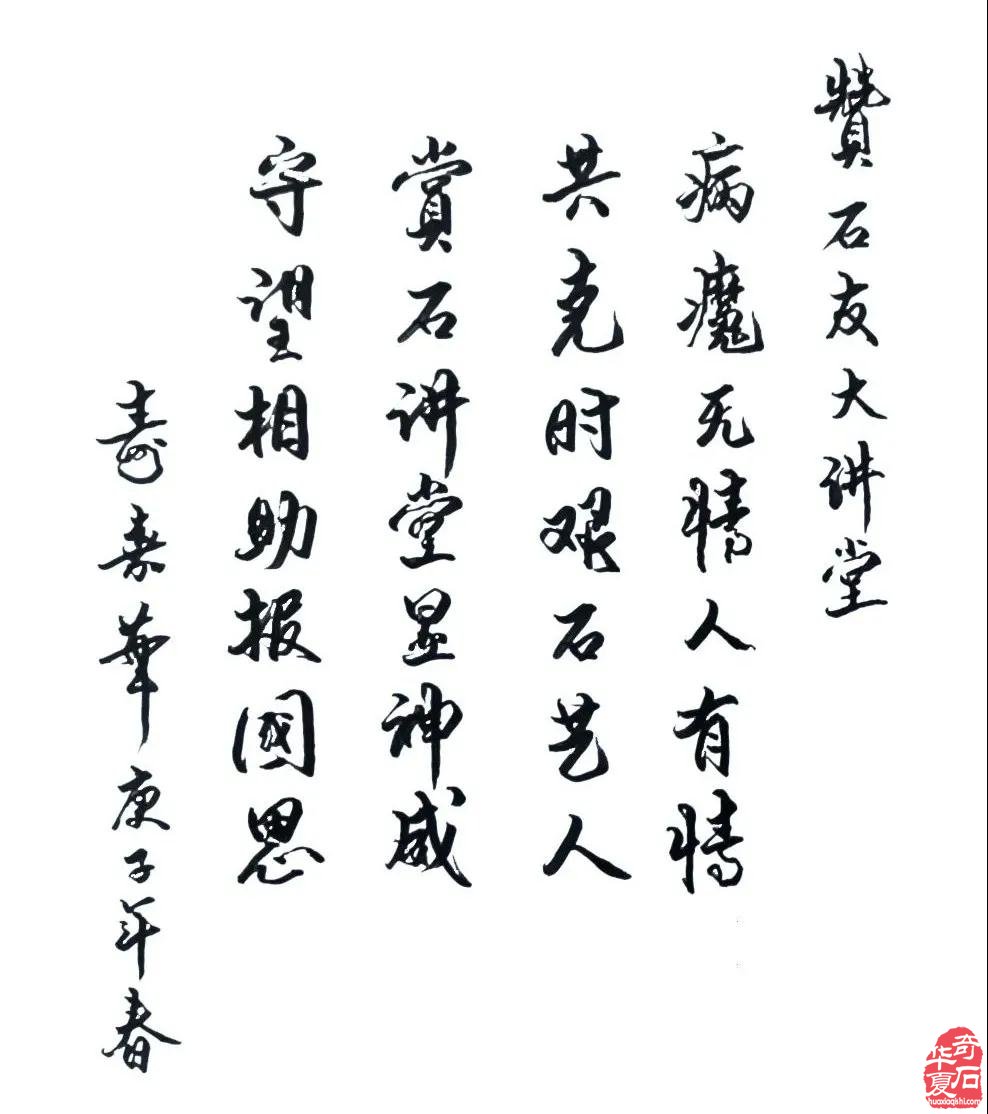 贊石友大讲堂
病魔无情人有情
共克时艰石艺人
賞石讲堂显神威
守望相助报國恩
壽嘉華庚子年春
华夏
奇石
huaxiaqishi.com